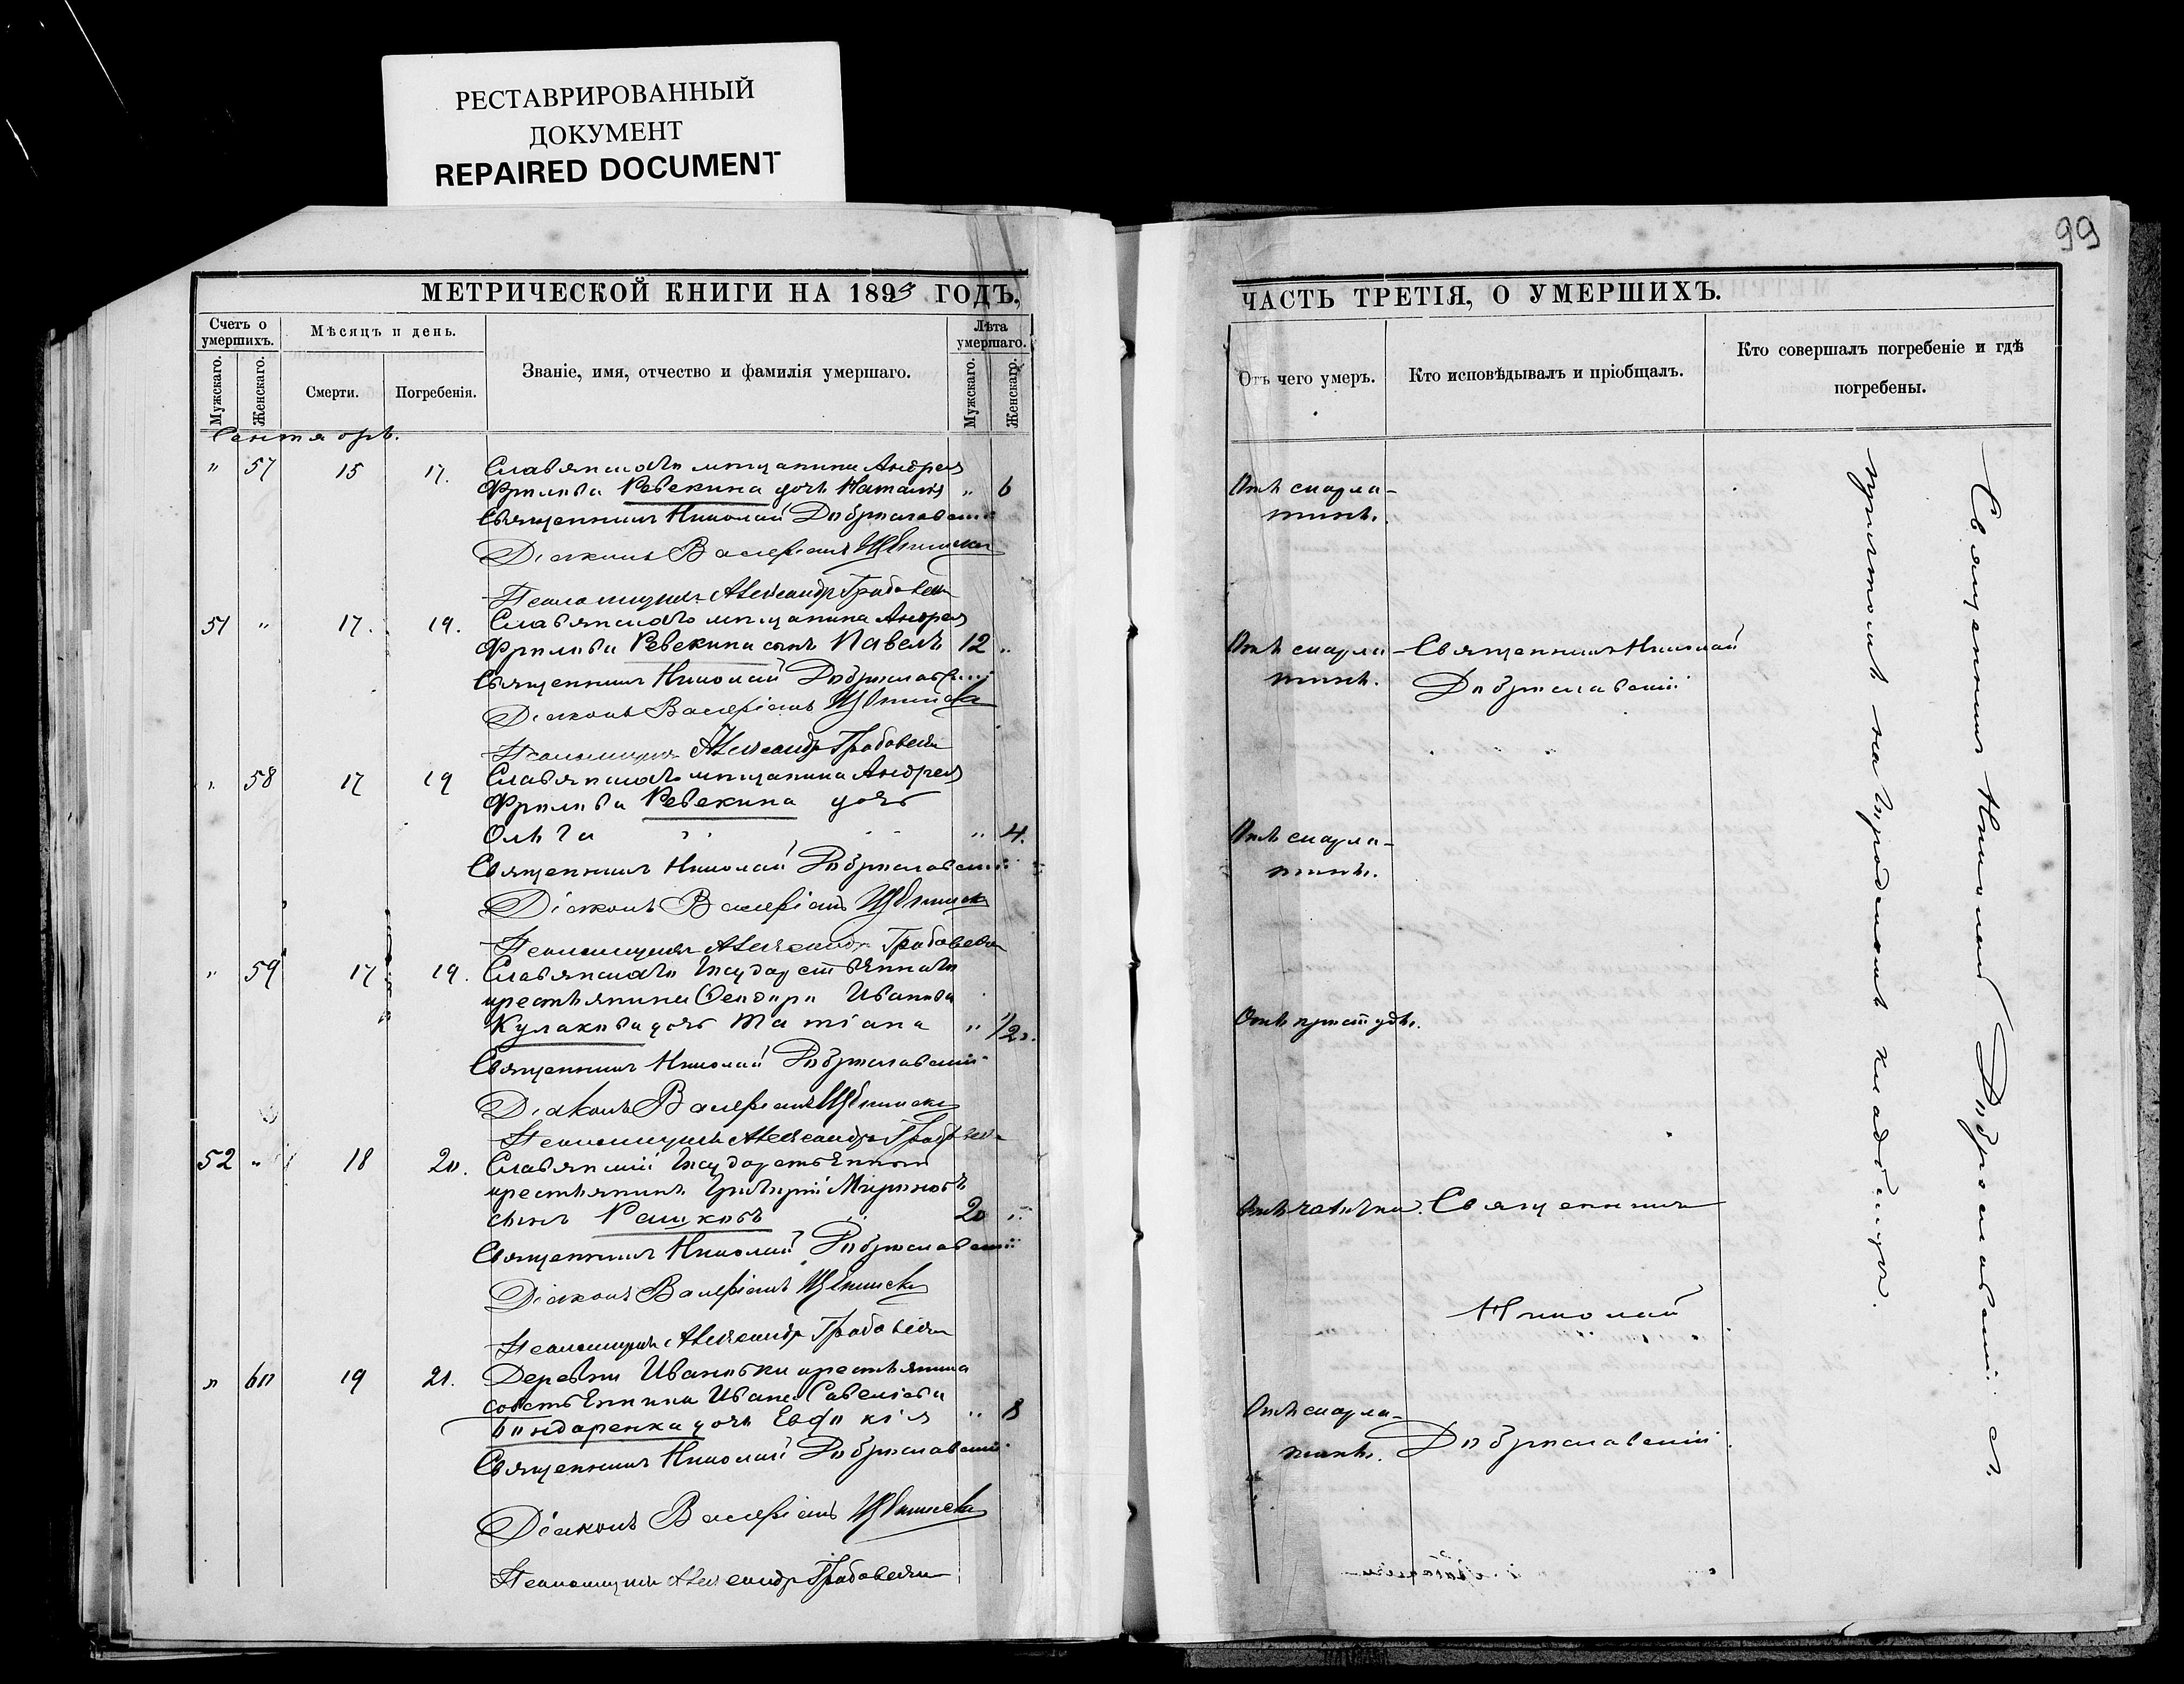 РЕСТАВРИРОВАННЫЙ
ДОКУМЕНТ
REPAIRED DOCUMENT
99
МЕТРИЧЕСКОЙ КНИГИ НА 1893 ГОДЪ,
Счетъ о умершихъ.
Мужскаго.
Женскаго.
Мѣсяцъ и день.
Смерти.
Погребенія.
Званіе, имя, отчество и фамилія умершаго.
Лѣта умершаго.
Мужскаго.
Женскаго.
Сентябрь.
" 57 15 17. Славянскаго мѣщанина Андрея
Фролова Ревекина дочь Наталія " 6
Священникъ Николай Доброславскій
Діаконъ Валеріанъ
Псаломщикъ Александръ Грабовскій
51 " 17. 19. Славянскаго мѣщанина Андрея
Фролова Ревекина сынъ Павелъ 12 "
Священникъ Николай Доброславскій
Діаконъ Валеріанъ
Псаломщикъ Александръ Грабовскій
" 58 17 19 Славянскаго мѣщанина Андрея
Фролова Ревекина дочь
Ольга " 4.
Священникъ Николай Доброславскій
Діаконъ Валеріанъ
Псаломщикъ Александръ Грабовскій
" 59 17 19. Славянскаго Государственнаго
крестьянина Ѳеодора Иванова
Кулакова дочь Татіана " 1/2.
Священникъ Николай Доброславскій
Діаконъ Валеріанъ
Псаломщикъ Александръ Грабовскій
52 " 18 20. Славянскій Государственный
крестьянинъ Григорій Мироновъ
сынъ Рашковъ 20 "
Священникъ Николай Доброславскій
Діаконъ Валеріанъ
Псаломщикъ Александръ Грабовскій
" 60 19 21. Деревни Ивановки крестьянина
собственника Ивана Савеліева
Бондаренка дочь Евдокія " 8
Священникъ Николай Доброславскій
Діаконъ Валеріанъ
Псаломщикъ Александръ Грабовскій
ЧАСТЬ ТРЕТІЯ, О УМЕРШИХЪ.
Отъ чего умеръ.
Кто исповѣдывалъ и пріобщалъ.
Кто совершалъ погребеніе и гдѣ погребены.
Отъ скарла-
тины.
Отъ скарла-
тины.
Священникъ Николай
Доброславскій
Отъ скарла-
тины.
Отъ простуды.
Отъ чахотки.
Священникъ
Николай
Доброславскій
Отъ скарла-
тины.
Священникъ Николай Доброславскій съ
причтомъ на городскомъ кладбищѣ.